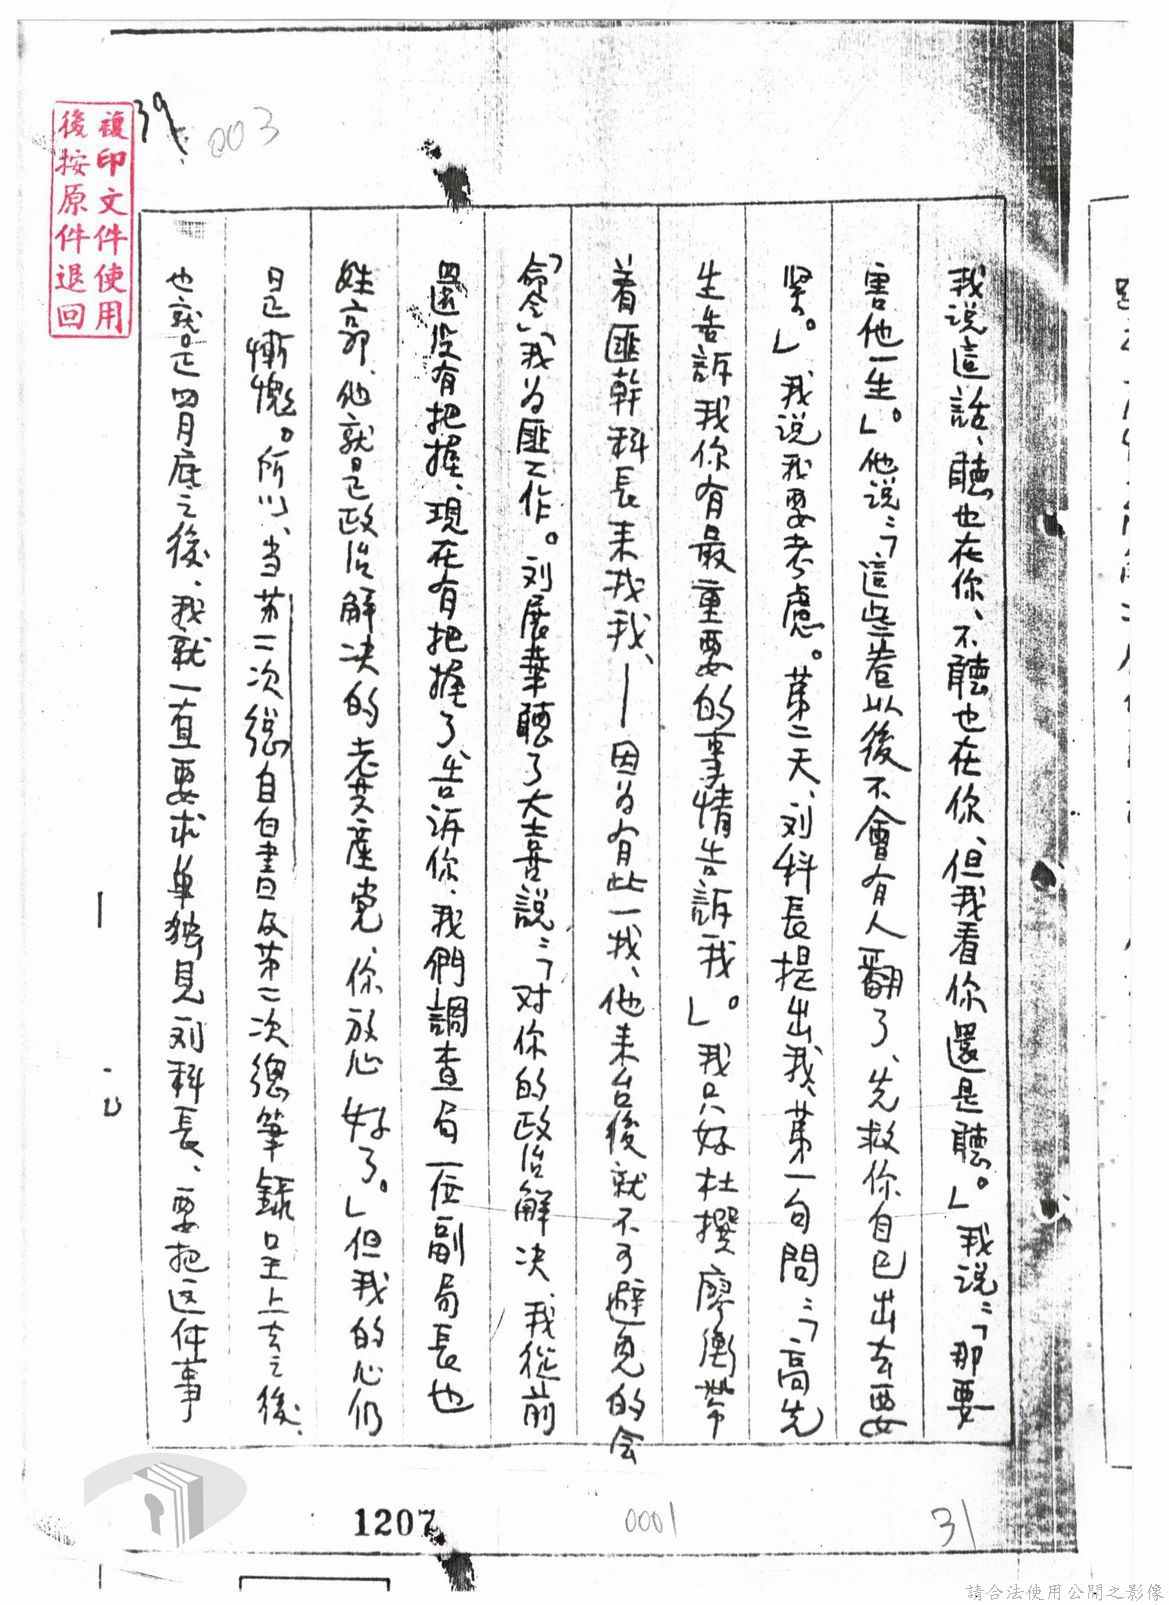 複印文件使用
後按原件退回
39
003
我说這話、聽也在你、不聽也在你、但我看你還是聽。」我说:「那要
害他一生。」他说:「這些卷以後不會有人翻了、先救你自己出去要
紧。」我说我要考慮。第二天、刘科長提出我、苐一句問:「高先
生告訴我你有最重要的事情告訴我」。我只好杜撰廖衡帶
着匪幹科長来找我、—因为有此一找、他来台後就不可避免的会
「命令」我为匪工作。刘展華聽了大喜説:「对你的政治解决、我從前
還没有把握、現在有把握了、告诉你、我們調查局一位副局長也
姓高、他就是政治解决的老共產党、你放心好了。」但我的心仍
是慚愧。所以、当苐二次總自白書及苐二次總筆錄呈上去之後、
也就是四月底之後、我就一直要求单独見刘科長、要把这件事
1207
0001
31
請合法使用公開之影像